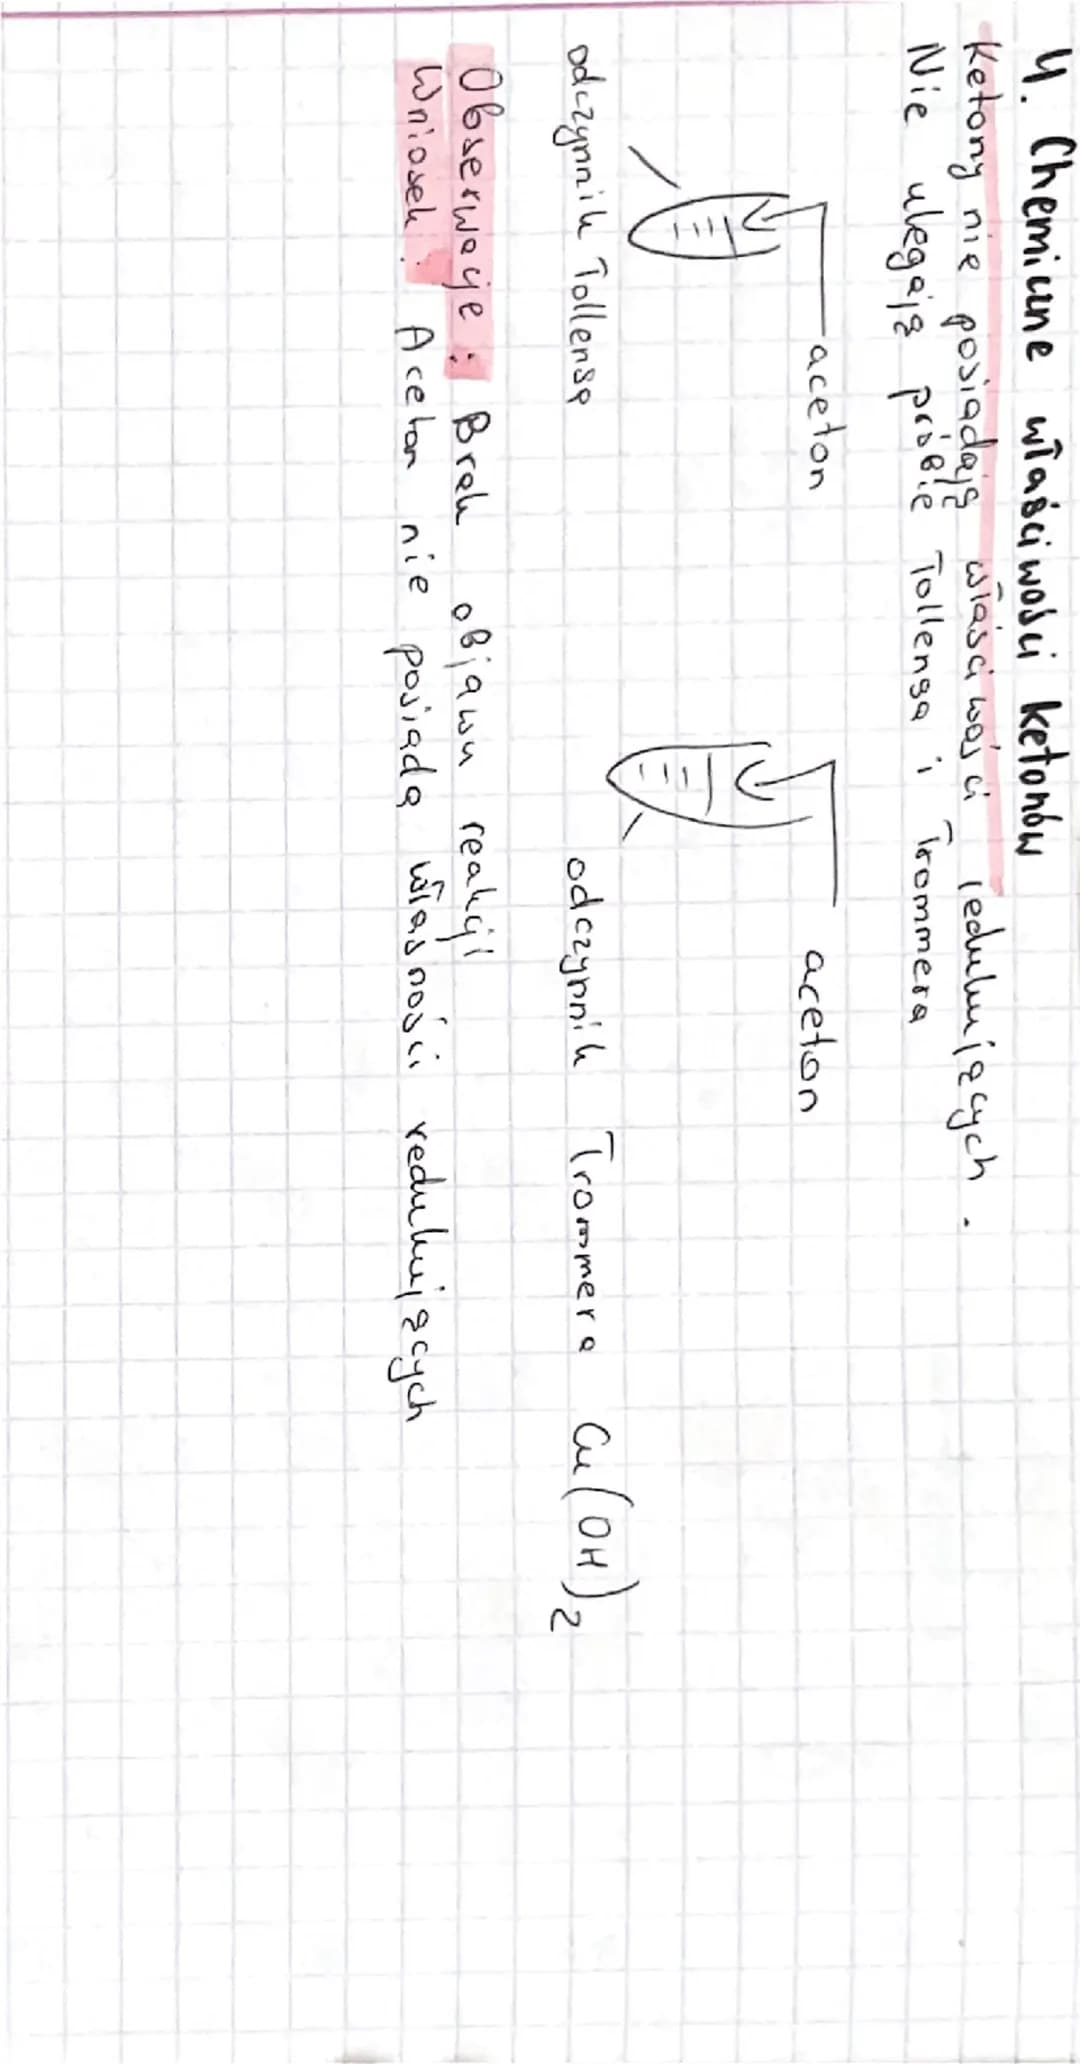 4. Chemiczne właściwości ketonów
Ketony nie posiadają właściwości redukujących.
Nie ulegają próbie Tollensa i Trommera
aceton aceton
odczynnik Tollensa odczynnik Trommera Cu(OH)2
Obserwacje: Brak objawu reakcji
Wniosek: Aceton nie posiada własności redukujących